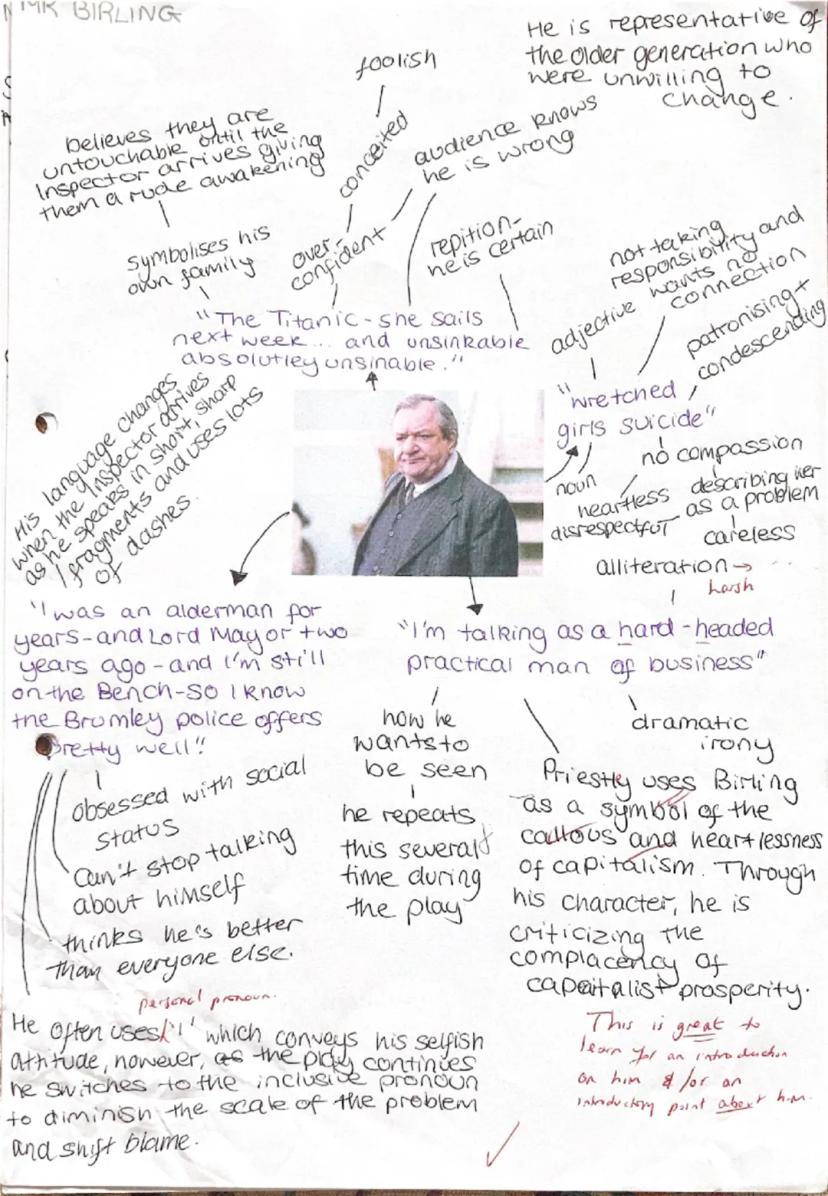 MR BIRLING
He is representative of
the older generation who
were unwilling to
change.
foolish
conceited
over-
confident
audience knows
he is wrong
repition-
he is certain
believes they are
untouchable until the
Inspector arrives giving
them a rude awakening
symbolises his
own family
"The Titanic - she sails
next week... and unsinkable
absolutley unsinable."
not taking
responsibility and
wants no
connection
adjective
patronising +
condescending
"wretched
girls suicide"
noun
heartless
disrespectful
no compassion
describing her
as a problem
careless
alliteration →
harsh
His language changes
when the Inspector arrives
as he speaks in short, sharp
fragments and uses lots
of dashes.
"I was an alderman for
years - and Lord Mayor two
years ago - and I'm still
on the Bench - so I know
the Brumley police offers
pretty well".
obsessed with social
status
can't stop talking
about himself
thinks he's better
than everyone else.
personal pronoun.
He often uses 'I' which conveys his selfish
attitude, however, as the play continues
he switches to the inclusive pronoun
to diminish the scale of the problem
and shift blame.
"I'm talking as a hard-headed
practical man of business"
how he
wants to
be seen
he repeats
this several
time during
the play
dramatic
irony
Priestley uses Birling
as a symbol of the
callous and heartlessness
of capitalism. Through
his character, he is
criticizing the
complacency of
capitalist prosperity.
This is great to
learn for an introduction
on him & /or an
introductory point about him.